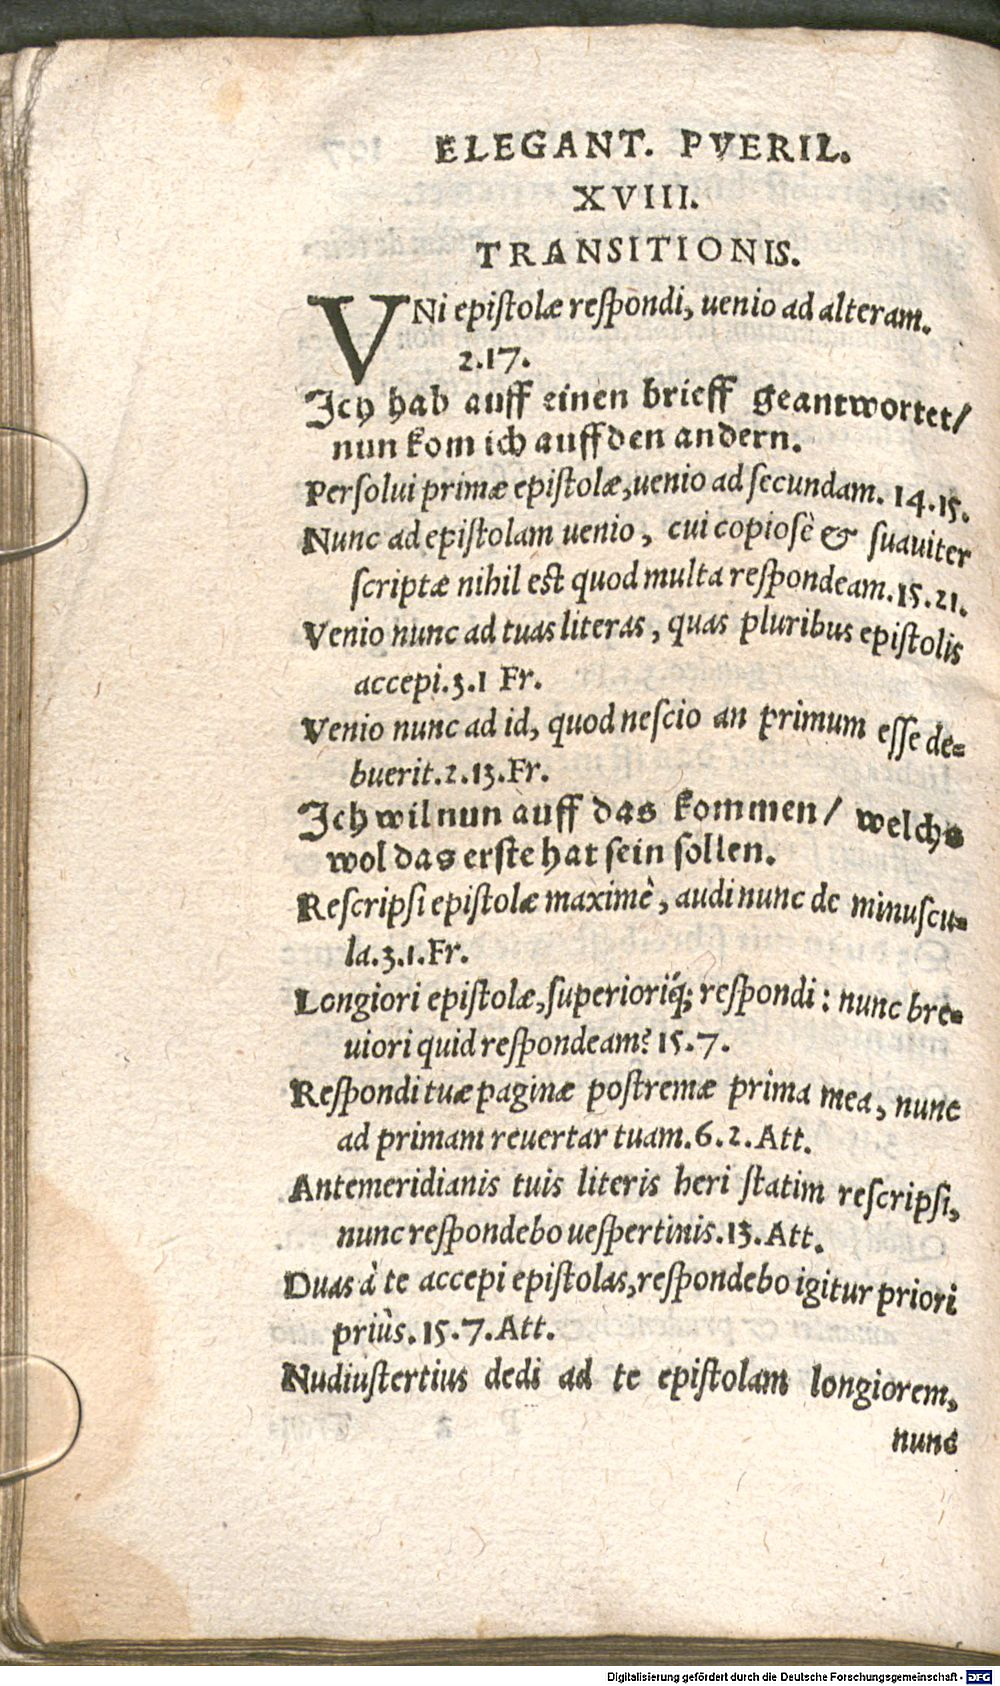 ELEGANT. PVERIL.
XVIII.
TRANSITIONIS.
VNi epiſtolæ reſpondi, uenio ad alteram.
2.17.
Ich hab auff einen brieff geantwortet/
nun kom ich auff den andern.
Perſolui primæ epiſtolæ, uenio ad ſecundam. 14.15.
Nunc ad epiſtolam uenio, cui copioſè & ſuauiter
ſcriptæ nihil eſt quod multa reſpondeam. 15.21.
Venio nunc ad tuas literas, quas pluribus epiſtolis
accepi. 3.1 Fr.
Venio nunc ad id, quod neſcio an primum eſſe de=
buerit. 2.13. Fr.
Ich wil nun auff das kommen/ welchs
wol das erſte hat ſein ſollen.
Reſcripſi epiſtolæ maximè, audi nunc de minuſcu=
la. 3.1. Fr.
Longiori epiſtolæ, ſuperioriq́; reſpondi: nunc bre=
uiori quid reſpondeam? 15.7.
Reſpondi tuæ paginæ poſtremæ prima mea, nunc
ad primam reuertar tuam. 6.2. Att.
Antemeridianis tuis literis heri ſtatim reſcripſi,
nunc reſpondebo ueſpertinis. 13. Att.
Duas à te accepi epiſtolas, reſpondebo igitur priori
priùs. 15.7. Att.
Nudiuſtertius dedi ad te epiſtolam longiorem,
nunc
Digitalisierung gefördert durch die Deutsche Forschungsgemeinschaft - DFG